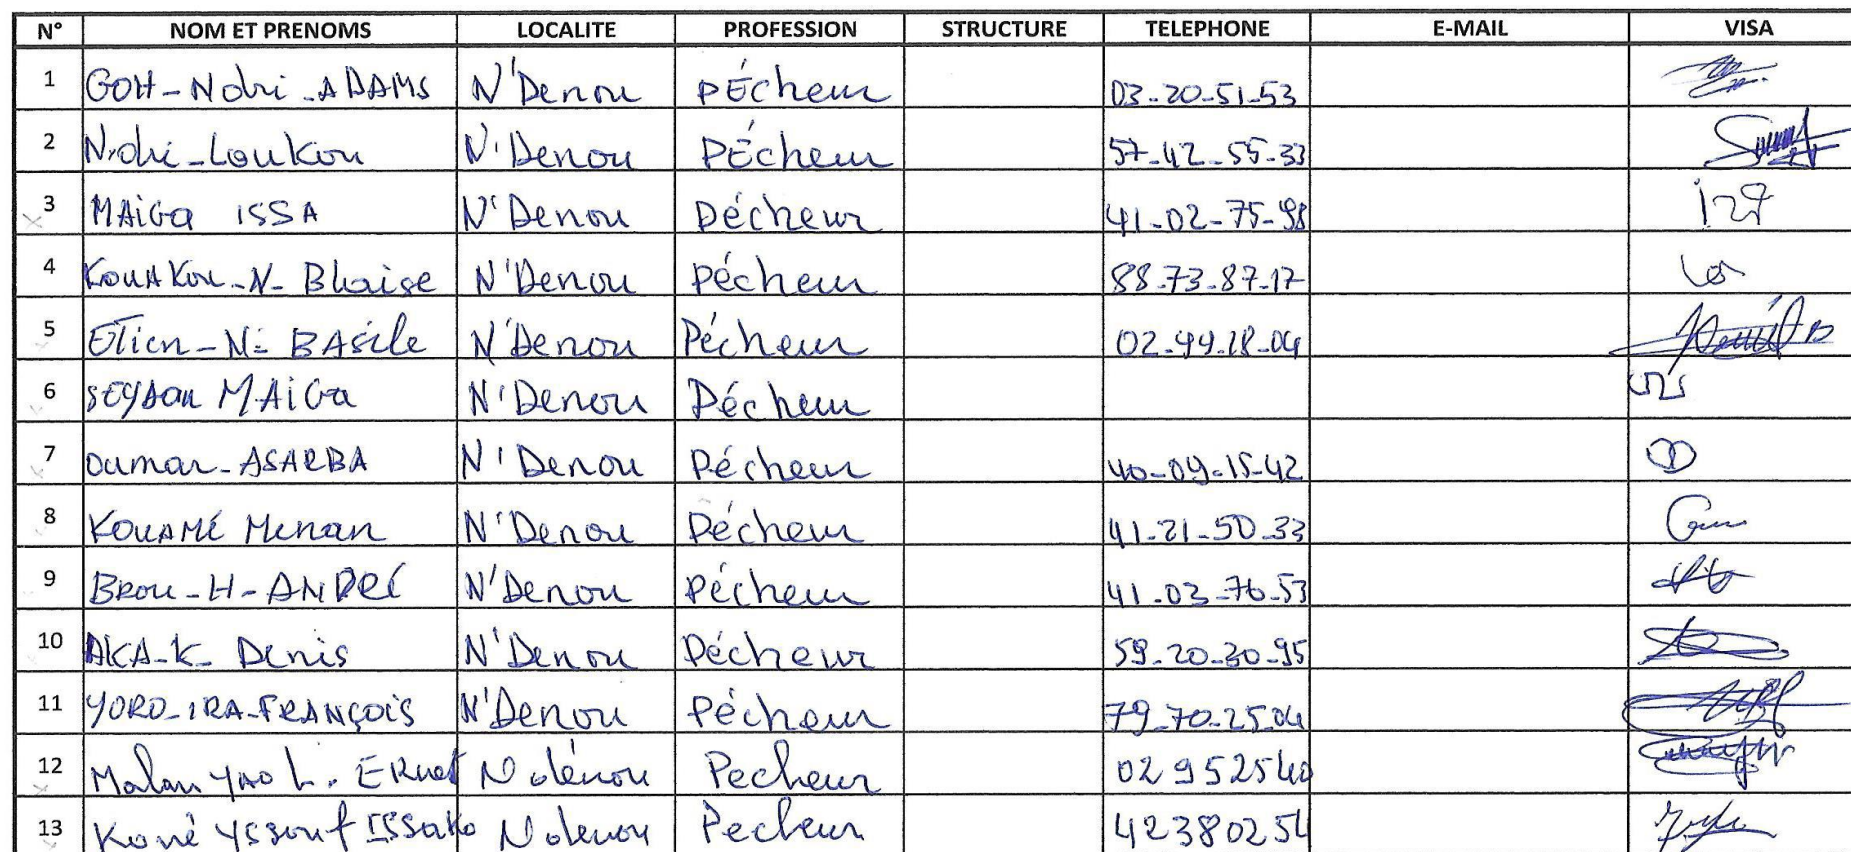 N° NOM ET PRENOMS LOCALITE PROFESSION STRUCTURE TELEPHONE E-MAIL VISA
1 GOH-Ndri-ADAMS N'Denou PÉcheur 03-20-51-53
2 N'dri-Loukou N'Denou PÉcheur 57-42-55-33
3 MAiGa ISSA N'Denou Pécheur 41-02-75-98
4 KouAKou-N-Blaise N'Denou Pécheur 88-73-87-17
5 ETien-N- BASile N'Denou Pécheur
6 SEYDou MAiGa N'Denou Pécheur
7 oumar-ASARBA N'Denou Pécheur 40-09-15-42
8 KOUAMÉ Menan N'Denou Pécheur 41-21-50-33
9 BRou-H-ANDRÉ N'Denou Pécheur 41-03-76-53
10 AKA-K- Denis N'Denou Pécheur 59-20-30-95
11 YORO-IRA-FRANÇOiS N'Denou Pécheur 79-70-25-04
12 Malan YAO L. Pecheur 02952540
13 Koné YSSouf ISSako Pecheur 42380254